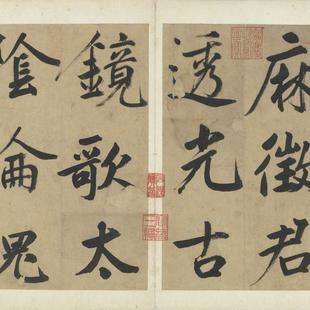 麻徵君
透光古
鏡歌太
陰侖